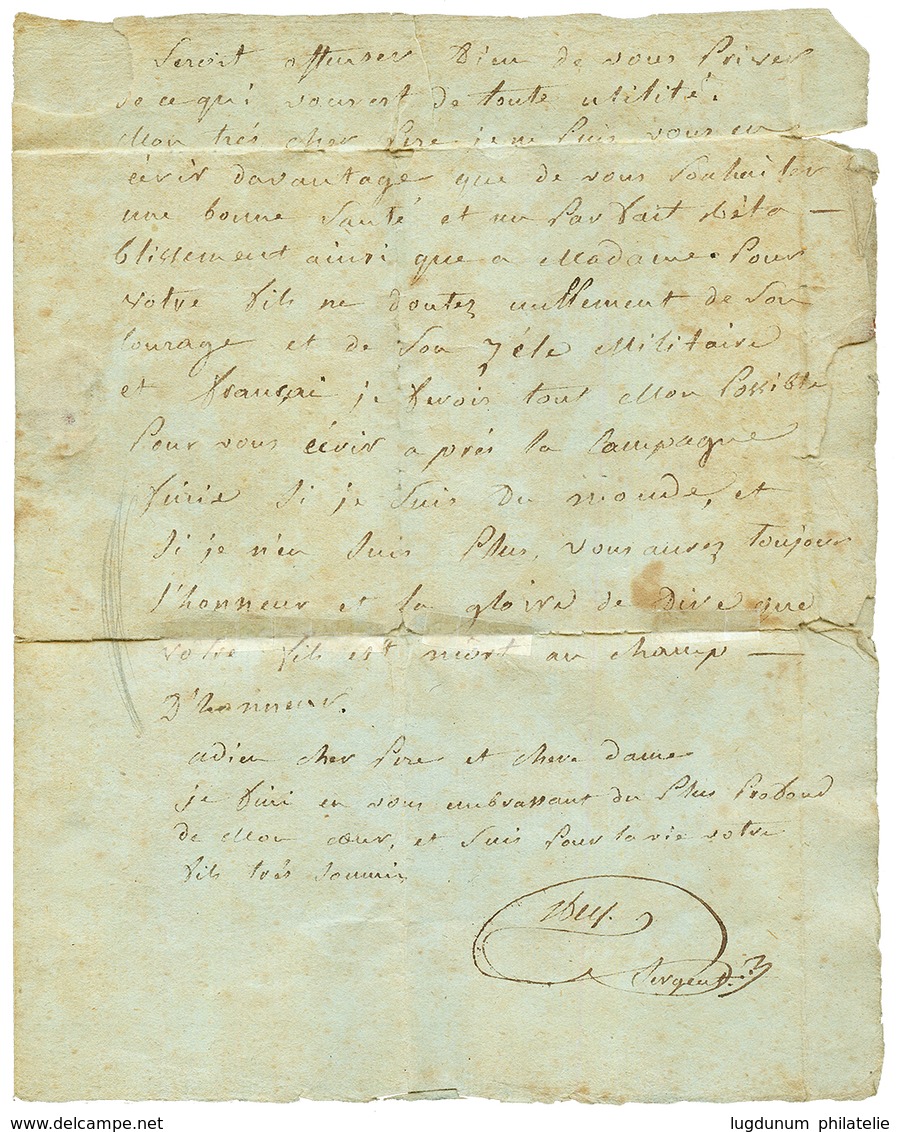 Seroit offenser Dieu de vous Priver
de ce qui vous est de toute utilité.
Mon trés cher Pere je ne Puis vous en
écrir davantage que de vous Souhaiter
une bonne Santé et un Parfait Réta —
blissement ainsi que a Madame. Pour
votre fils ne doutez nullement de Son
Courage et de Son zéle Militaire
et français je ferois tout Mon Possible
Pour vous écrir aprés la Campagne
finie Si je Suis Du monde, et
Si je n'en Suis Plus, vous aurez toujour
l'honneur et la gloire de Dire que
votre fils est mort au champ —
D'honneur.
adieu cher Pere et chere dame
je fini en vous embrassant du Plus Profond
de Mon cœur, et Suis Pour la vie votre
fils trés Soumis
Sergent
delcampe.net
lugdunum philatelie